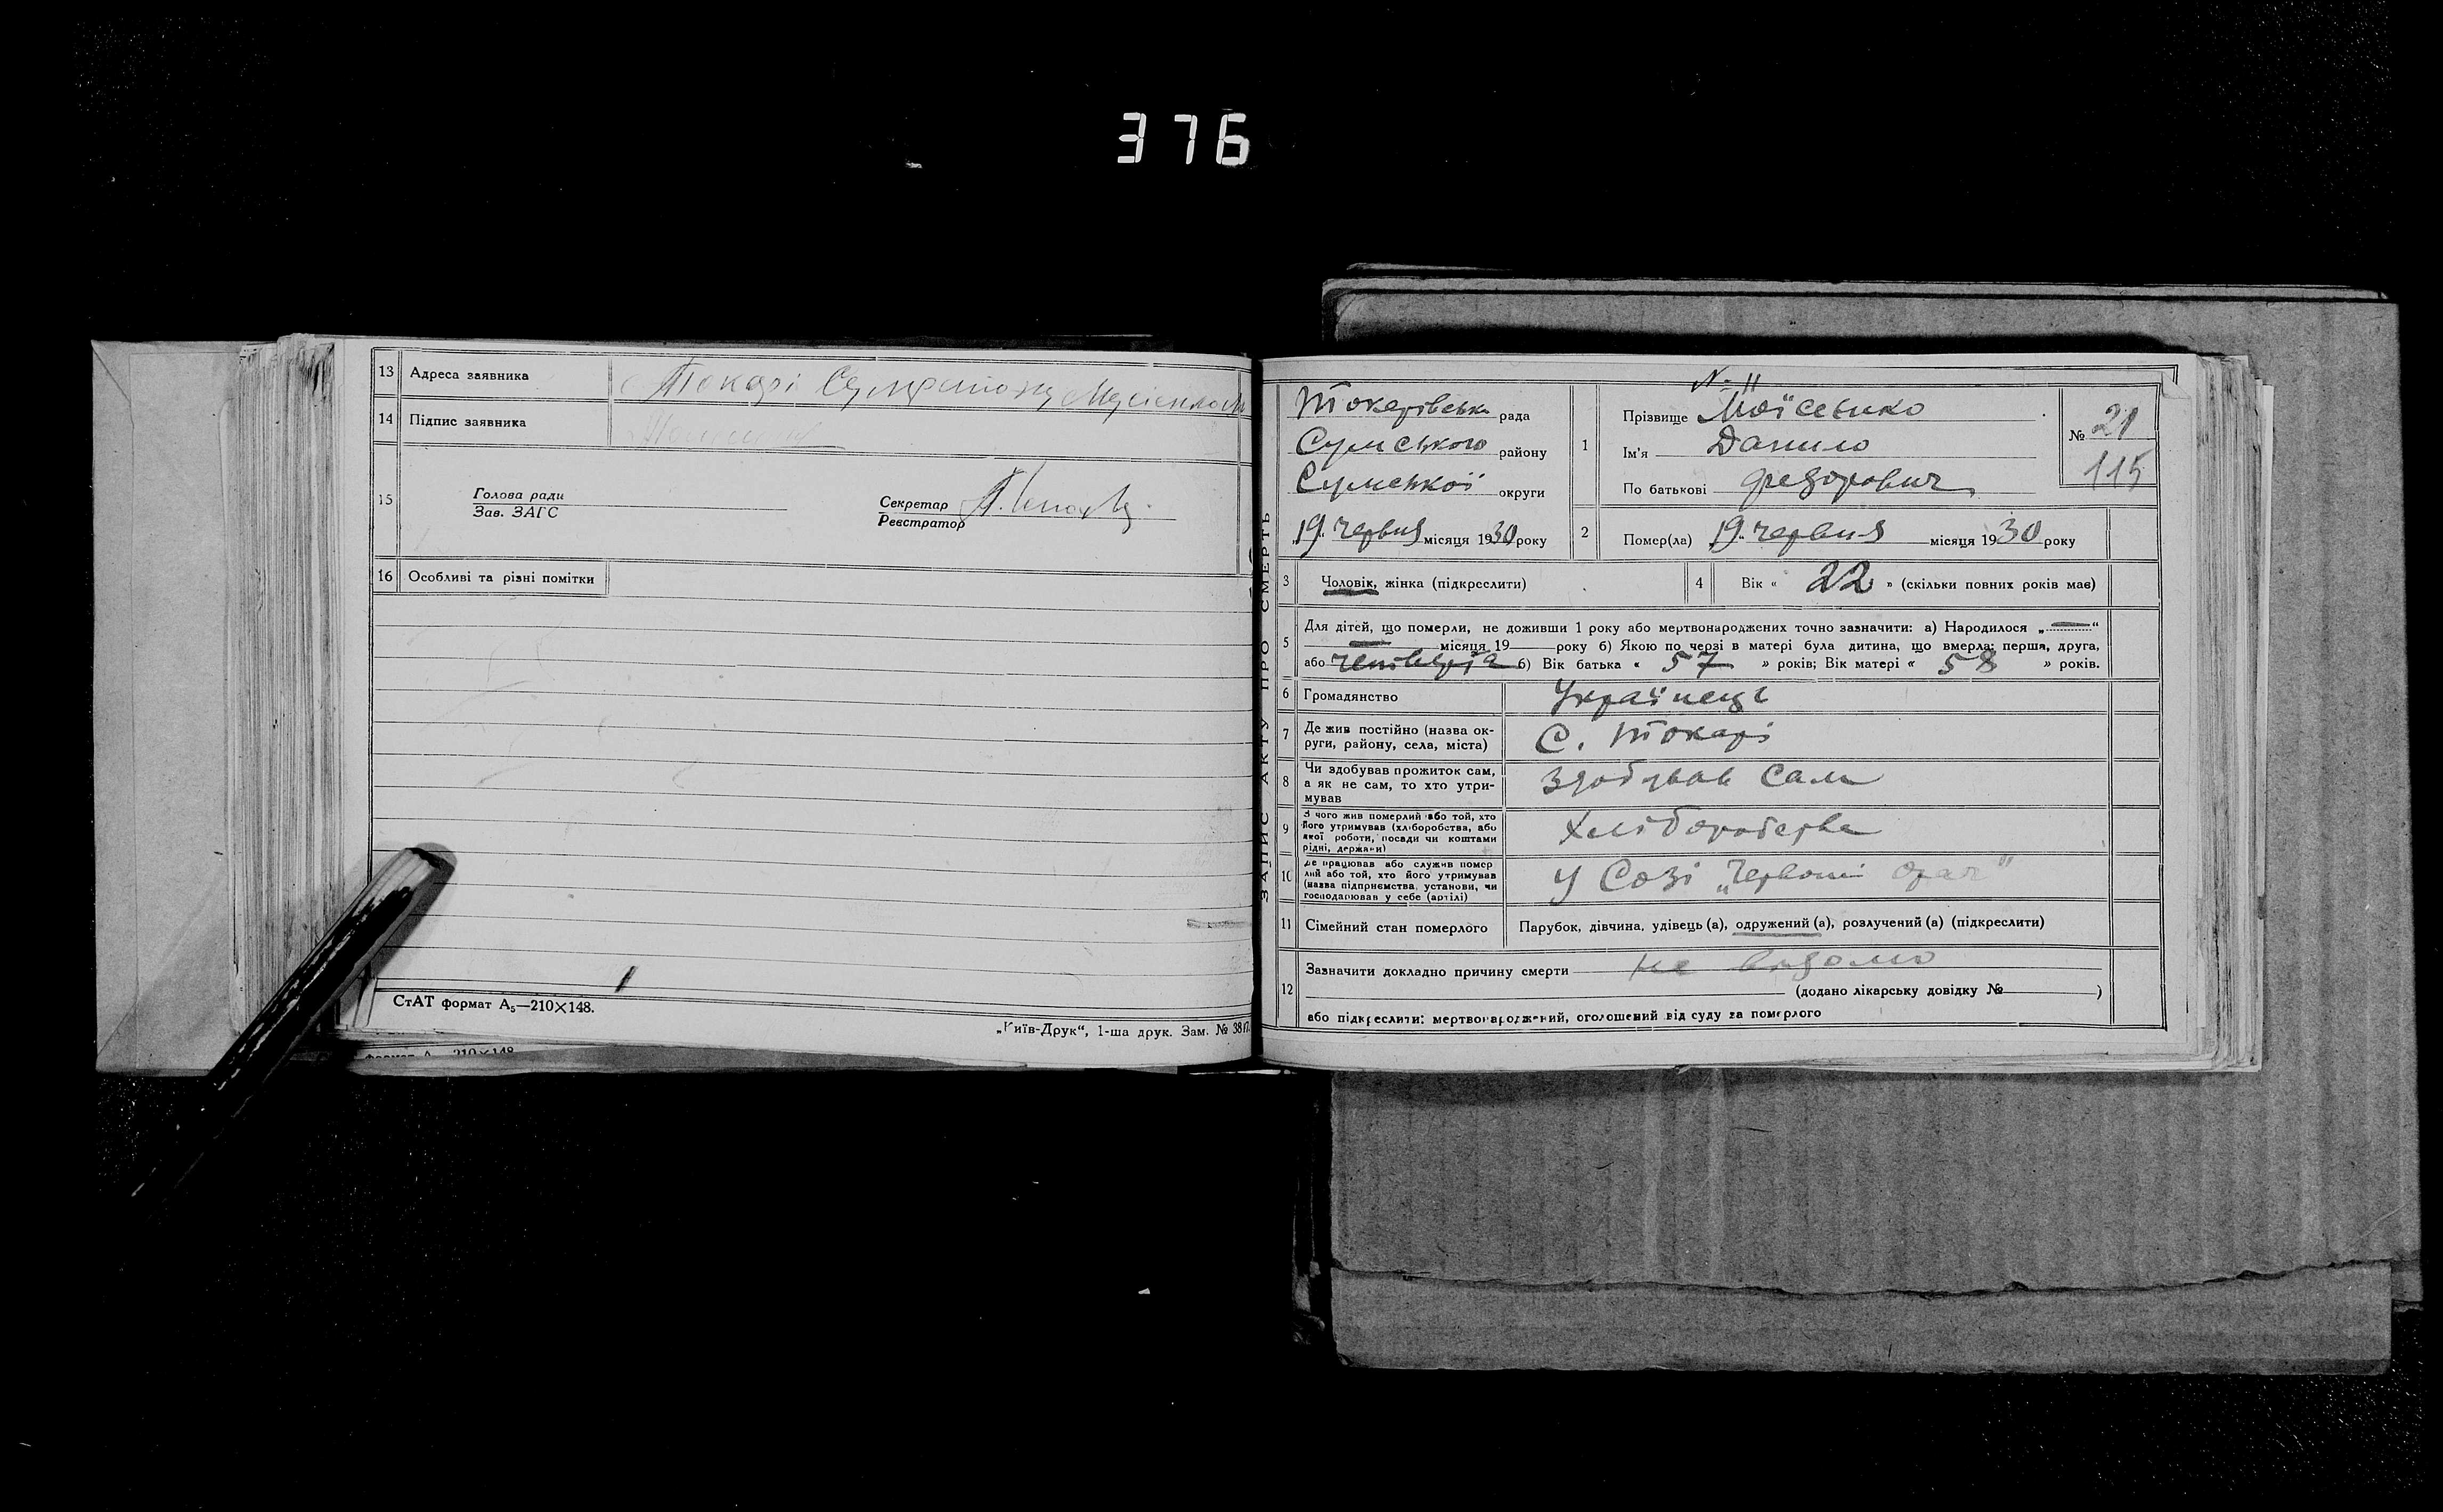 376
13 Адреса заявника Токарі
14 Підпис заявника
15 Голова ради Секретар
Зав. ЗАГС Реєстратор
16 Особливі та різні помітки
СтАТ формат А₅—210×148.
„Київ-Друк“, 1-ша друк. Зам. №
формат А 210×148
ЗАПИС АКТУ ПРО СМЕРТЬ
Токарівська рада
Сумського району
Сумської округи
„19“ червня місяця 1930 року
№ 11
1 Прізвище Моісеєнко
Ім'я Данило
По батькові Федорович
№ 21
115
2 Помер(ла) „19“ червня місяця 1930 року
3 Чоловік, жінка (підкреслити)
4 Вік « 22 » (скільки повних років мав)
5 Для дітей, що померли, не доживши 1 року або мертвонароджених точно зазначити: а) Народилося „—“
— місяця 19 року б) Якою по черзі в матері була дитина, що вмерла: перша, друга,
або четверта б) Вік батька « 57 » років; Вік матері « 58 » років.
6 Громадянство Українець
7 Де жив постійно (назва округи, району, села, міста) С. Токарі
8 Чи здобував прожиток сам, а як не сам, то хто утримував здобував сам
9 З чого жив померлий або той, хто його утримував (хліборобства, або якої роботи, посади чи коштами рідні, держави) Хліборобства
10 Де працював або служив померлий або той, хто його утримував (назва підприємства, установи, чи господарював у себе (артілі) У Созі „Червоний Орач“
11 Сімейний стан померлого Парубок, дівчина, удівець (а), одружений (а), розлучений (а) (підкреслити)
12 Зазначити докладно причину смерти не відомо
(додано лікарську довідку № )
або підкреслити: мертвонароджений, оголошений від суду за померлого